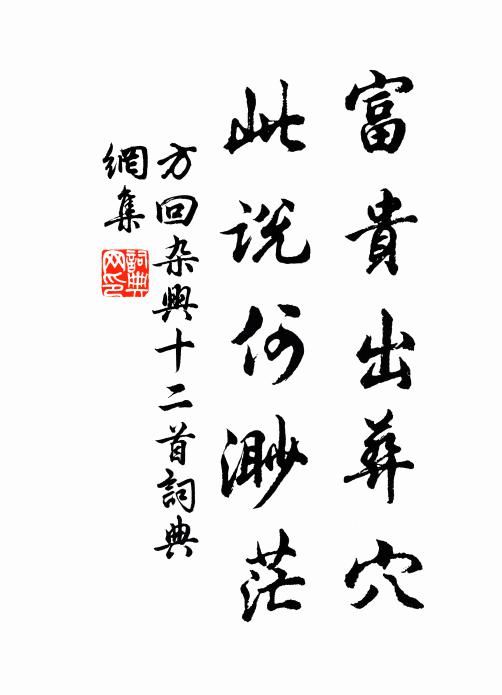 富貴出葬穴
此説何渺茫
方回杂興十二首詞典
網集
詞典
网印